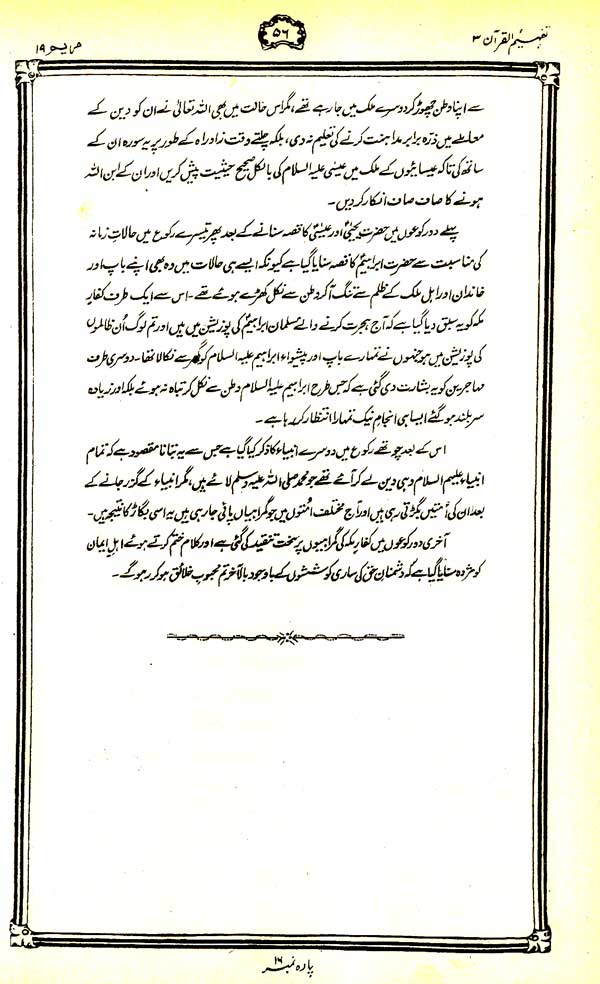 تفہیم القرآن ۳
۵۶
مریم ۱۹
سے اپنا وطن چھوڑ کر دوسرے ملک میں جا رہے تھے، مگر اس حالت میں بھی اللہ تعالیٰ نے ان کو دین کے
معاملے میں ذرہ برابر مداہنت کرنے کی تعلیم نہ دی، بلکہ چلتے وقت زاد راہ کے طور پر یہ سورہ ان کے
ساتھ کی تاکہ عیسائیوں کے ملک میں عیسیٰ علیہ السلام کی بالکل صحیح حیثیت پیش کریں اور ان کے ابن اللہ
ہونے کا صاف صاف انکار کر دیں۔
پہلے دو رکوعوں میں حضرت یحییٰؑ اور عیسیٰؑ کا قصہ سنانے کے بعد پھر تیسرے رکوع میں حالاتِ زمانہ
کی مناسبت سے حضرت ابراہیمؑ کا قصہ سنایا گیا ہے کیونکہ ایسے ہی حالات میں وہ بھی اپنے باپ اور
خاندان اور اہل ملک کے ظلم سے تنگ آکر وطن سے نکل کھڑے ہوئے تھے۔ اس سے ایک طرف کفارِ
مکہ کو یہ سبق دیا گیا ہے کہ آج ہجرت کرنے والے مسلمان ابراہیمؑ کی پوزیشن میں ہیں اور تم لوگ اُن ظالموں
کی پوزیشن میں ہو جنہوں نے تمہارے باپ اور پیشوا، ابراہیم علیہ السلام کو گھر سے نکالا تھا۔ دوسری طرف
مہاجرین کو یہ بشارت دی گئی ہے کہ جس طرح ابراہیم علیہ السلام وطن سے نکل کر تباہ نہ ہوئے بلکہ اور زیادہ
سربلند ہو گئے ایسا ہی انجامِ نیک تمہارا انتظار کر رہا ہے۔
اس کے بعد چوتھے رکوع میں دوسرے انبیاء کا ذکر کیا گیا ہے جس سے یہ بتانا مقصود ہے کہ تمام
انبیاء علیہم السلام وہی دین لے کر آئے تھے جو محمد صلی اللہ علیہ وسلم لائے ہیں، مگر انبیاء کے گذر جانے کے
بعد ان کی اُمتیں بگڑتی رہی ہیں اور آج مختلف اُمتوں میں جو گمراہیاں پائی جا رہی ہیں یہ اسی بگاڑ کا نتیجہ ہیں۔
آخری دو رکوعوں میں کفارِ مکہ کی گمراہیوں پر سخت تنقید کی گئی ہے اور کلام ختم کرتے ہوئے اہلِ ایمان
کو مژدہ سنایا گیا ہے کہ دشمنانِ حق کی ساری کوششوں کے باوجود بالآخر تم محبوبِ خلائق ہو کر رہو گے۔
پارہ نمبر ۱۶